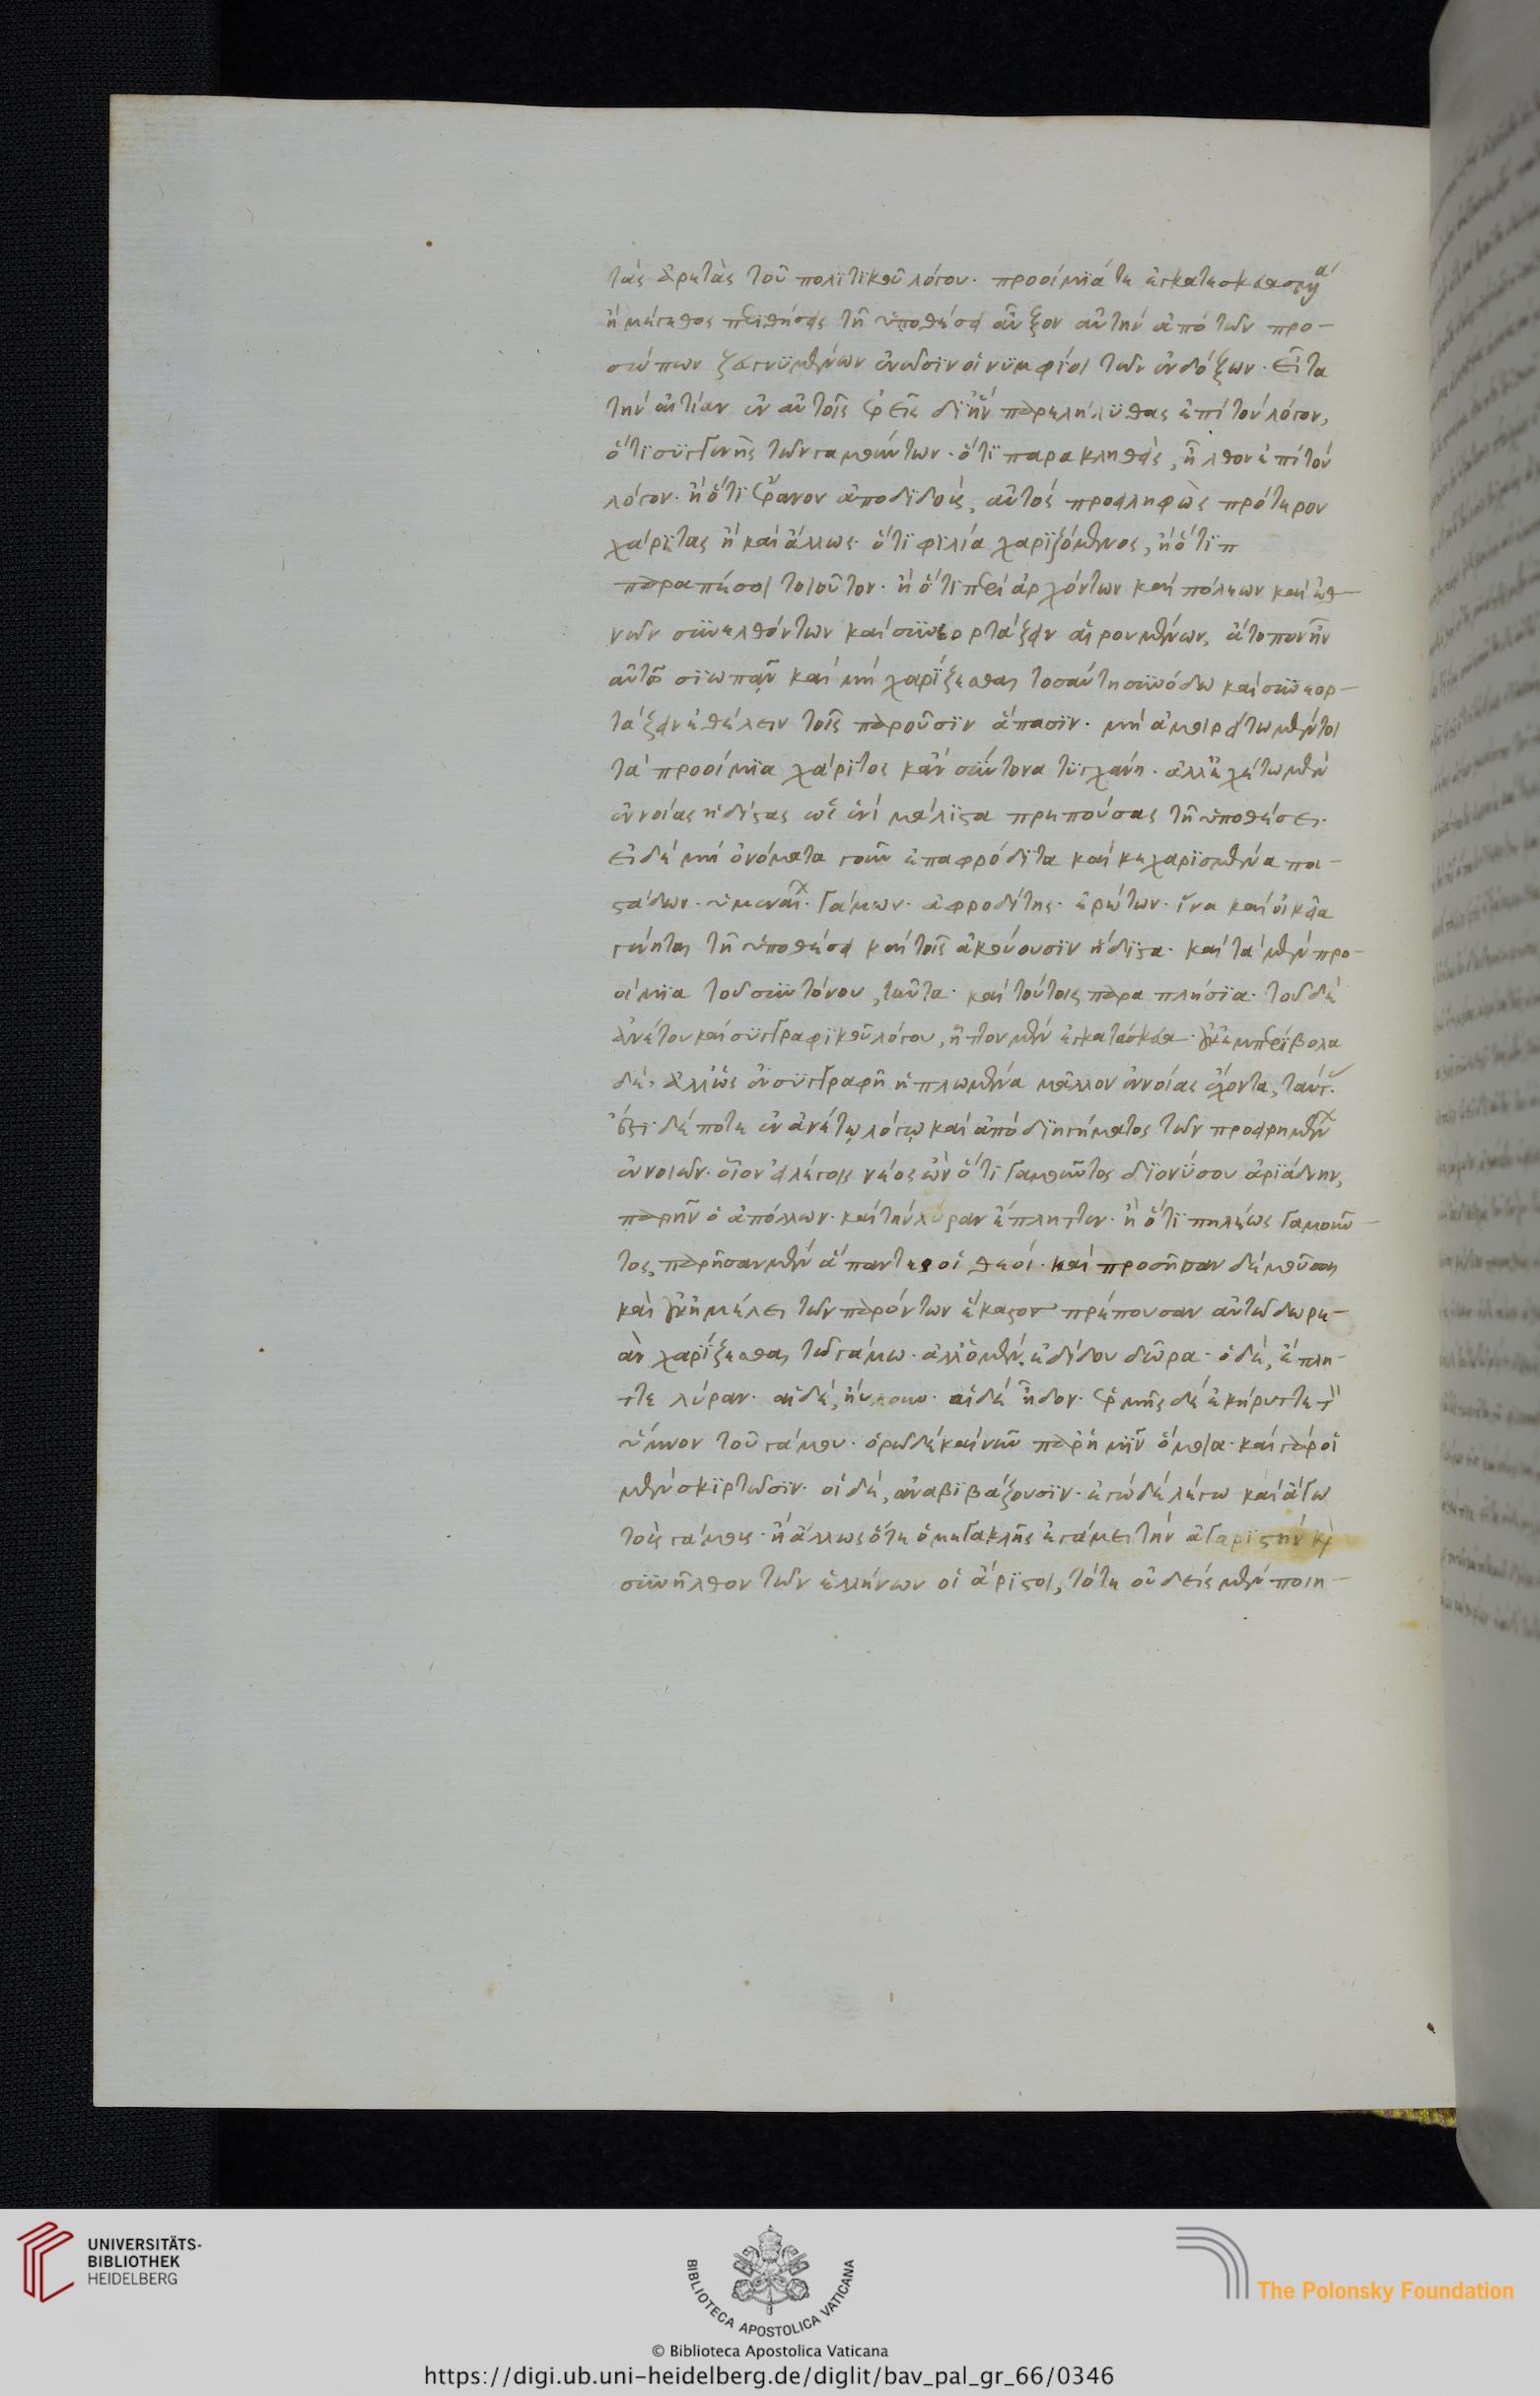 τὰς ἀρετὰς τοῦ πολιτικοῦ λόγου· προοίμιά τε ἐγκατεσκευασμένα
ἢ μέγεθος περιθήσεις τῇ ὑποθέσει αὔξων αὐτὴν ἀπὸ τῶν προ-
σώπων ζευγνυμένων ἂν ὦσιν οἱ νυμφίοι τῶν ἐνδόξων· εἶτα
τὴν αἰτίαν ἐν αὐτοῖς ἐρεῖς δι' ἣν παρελήλυθας ἐπὶ τὸν λόγον,
ὅτι συγγενὴς τῶν γαμούντων· ὅτι παρακληθεὶς, ἦλθον ἐπὶ τὸν
λόγον· ἢ ὅτι ἔρανον ἀποδιδοὺς, αὐτὸς προειληφὼς πρότερον
χάριτας ἢ καὶ ἄλλως· ὅτι φιλία χαριζόμενος, ἢ ὅτι π
παραπέσοι τοιοῦτον· ἢ ὅτι περὶ ἀρχόντων καὶ πόλεων καὶ ἐθ-
νῶν συνελθόντων καὶ συνεορτάζειν αἱρουμένων, ἄτοπον ἦν
αὐτὸν σιωπᾶν καὶ μὴ χαρίζεσθαι τοσαύτῃ συνόδω καὶ συνεορ-
τάζειν ἐθέλειν τοῖς παροῦσιν ἅπασιν· μὴ ἀμοιρείτω μέντοι
τὰ προοίμια χάριτος κἂν σύντονα τυγχάνη· ἀλλ' ἐχέτω μὲν
ἐννοίας ἡδίστας ὡς ἔνι μάλιστα πρεπούσας τῇ ὑποθέσει·
εἰ δὲ μὴ ὀνόματα γοῦν ἐπαφρόδιτα καὶ κεχαρισμένα πα-
στάδων· ὑμεναίων· γάμων· ἀφροδίτης· ἐρώτων· ἵνα καὶ οἰκεῖα
γένηται τῇ ὑποθέσει καὶ τοῖς ἀκούουσιν ἥδιστα· καὶ τὰ μὲν προ-
οίμια τοῦ συντόνου, ταῦτα· καὶ τούτοις παραπλήσια· τοῦ δὲ
ἀνέτου καὶ συγγραφικοῦ λόγου, ἧττον μὲν ἐγκατάσκευα· οὐκ ἐμπερίβολα
δὲ, ἀλλ' ὡς ἐν συγγραφῇ ἡπλωμένα μᾶλλον ἐννοίας ἔχοντα, ταύτας·
ἔστι δέ ποτε ἐν ἀνέτῳ λόγῳ καὶ ἀπὸ διηγήματος τῶν προειρημένων
ἐννοιῶν· οἷον εἰ λέγοις νέος ὢν ὅτι γαμοῦντος διονύσου ἀριάδνην,
παρῆν ὁ ἀπόλλων· καὶ τὴν λύραν ἔπληττεν· ἢ ὅτι πηλέως γαμοῦν-
τος, παρῆσαν μὲν ἅπαντες οἱ θεοί· καὶ προσῆσαν δὲ μοῦσαι
καὶ οὐκ ἠμέλει τῶν παρόντων ἕκαστον πρέπουσαν αὐτῶ δωρε-
ὰν χαρίζεσθαι τῶ γάμω· ἀλλ' ὁ μὲν, ἐδίδου δῶρα· ὁ δὲ, ἔπλη-
ττε λύραν· αἱ δὲ, ηὔλουν· αἱ δὲ ᾖδον· ἑρμῆς δὲ ἐκήρυττε τὸν
ὕμνον τοῦ γάμου· ὁρῶ δὲ καὶ νῦν παρ' ἡμῖν ὅμοια· καὶ γὰρ οἱ
μὲν σκιρτῶσιν· οἱ δὲ, ἀναβιβάζουσιν· ἐγὼ δὲ λέγω καὶ ἄγω
τοὺς γάμους· ἢ ἄλλως ὅτε ὁ μεγακλῆς ἐγάμει τὴν ἀγαρίστην καὶ
συνῆλθον τῶν ἑλλήνων οἱ ἄριστοι, τότε οὐδεὶς μὲν ποιη-
UNIVERSITÄTS-
BIBLIOTHEK
HEIDELBERG
BIBLIOTECA APOSTOLICA VATICANA
The Polonsky Foundation
© Biblioteca Apostolica Vaticana
https://digi.ub.uni-heidelberg.de/diglit/bav_pal_gr_66/0346